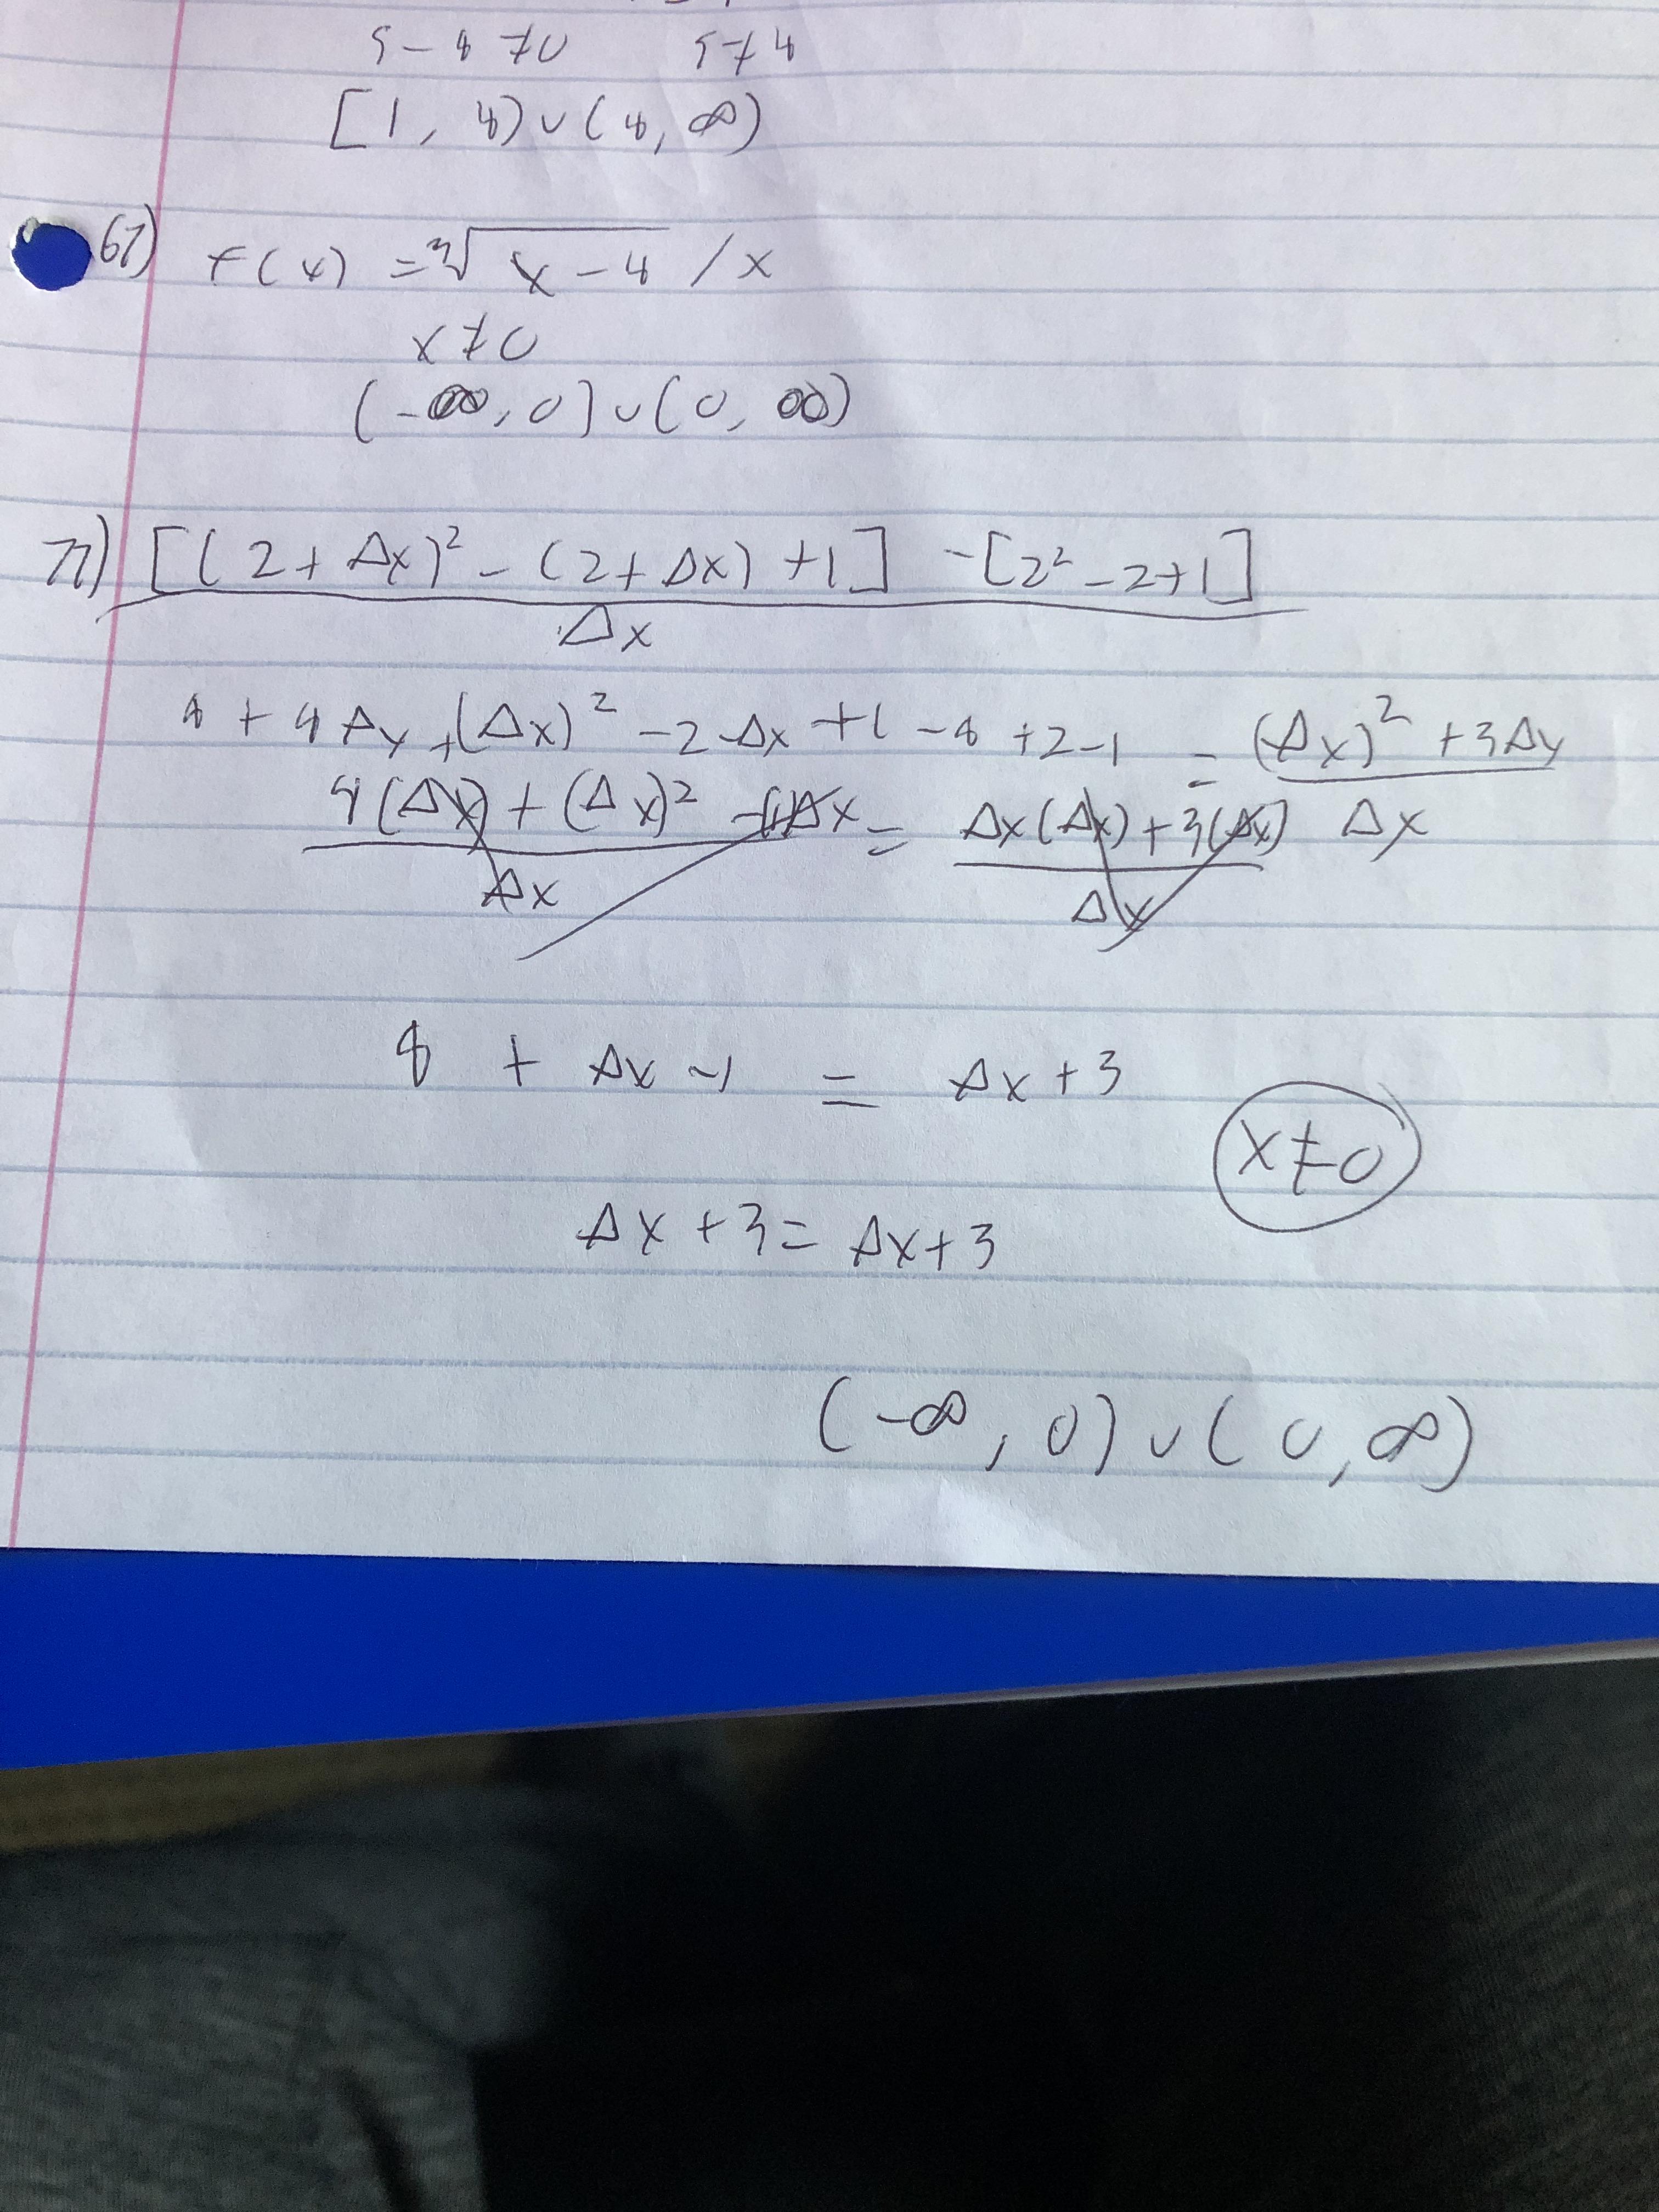 5 - 4 ≠ 0 5 ≠ 4
[1, 4) ∪ (4, ∞)
67) f(x) = ∛(x - 4) / x
x ≠ 0
(-∞, 0) ∪ (0, ∞)
77) [(2 + Δx)² - (2 + Δx) + 1] - [2² - 2 + 1]
Δx
4 + 4Δx + (Δx)² - 2 - Δx + 1 - 4 + 2 - 1 = (Δx)² + 3Δx
4(Δx) + (Δx)² - 1Δx = Δx(Δx) + 3(Δx) Δx
Δx Δx
4 + Δx - 1 = Δx + 3
x ≠ 0
Δx + 3 = Δx + 3
(-∞, 0) ∪ (0, ∞)